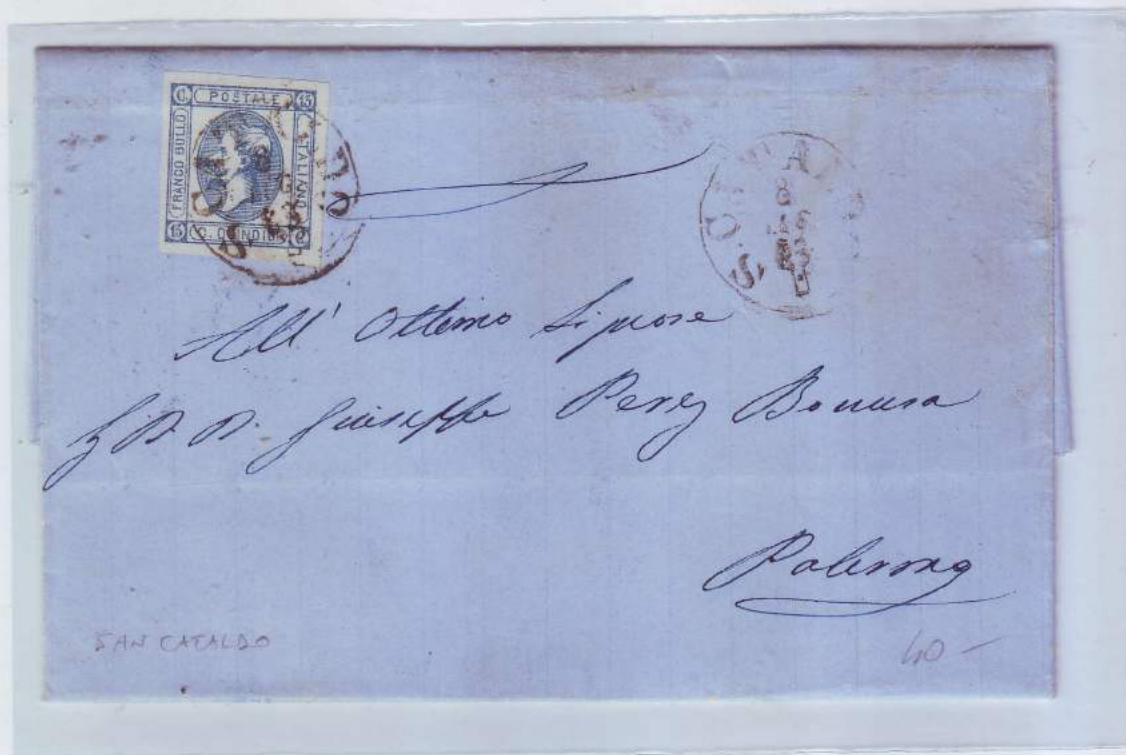 C. POSTALE 15
FRANCO BOLLO
ITALIANO
15 C. QUINDICI C.
S. CATALDO
S. CATALDO
8
All' Ottimo Signore
D. D. Giuseppe Perez Bonura
Palermo
SAN CATALDO
40 -